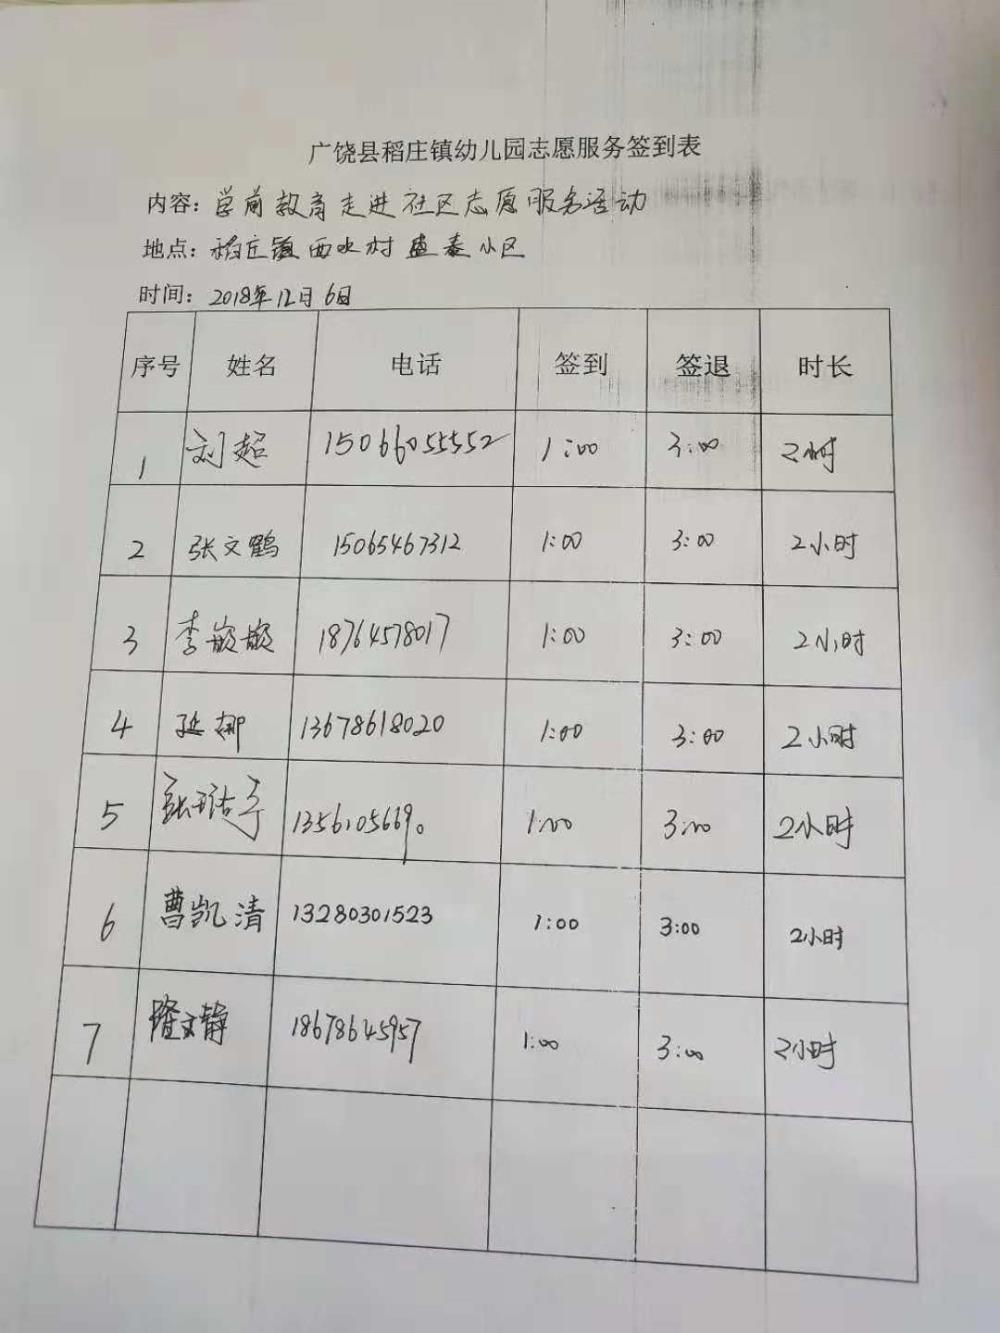 广饶县稻庄镇幼儿园志愿服务签到表
内容：学前教育走进社区志愿服务活动
地点：稻庄镇西水村盛泰小区
时间：2018年12月6日
序号 姓名 电话 签到 签退 时长
1 刘超 15066055552 1:00 3:00 2小时
2 张文鹤 15065467312 1:00 3:00 2小时
3 李嫰嫰 18764578017 1:00 3:00 2小时
4 延娜 13678618020 1:00 3:00 2小时
5 1:00 3:00 2小时
6 曹凯清 13280301523 1:00 3:00 2小时
7 隆文静 18678645957 1:00 3:00 2小时